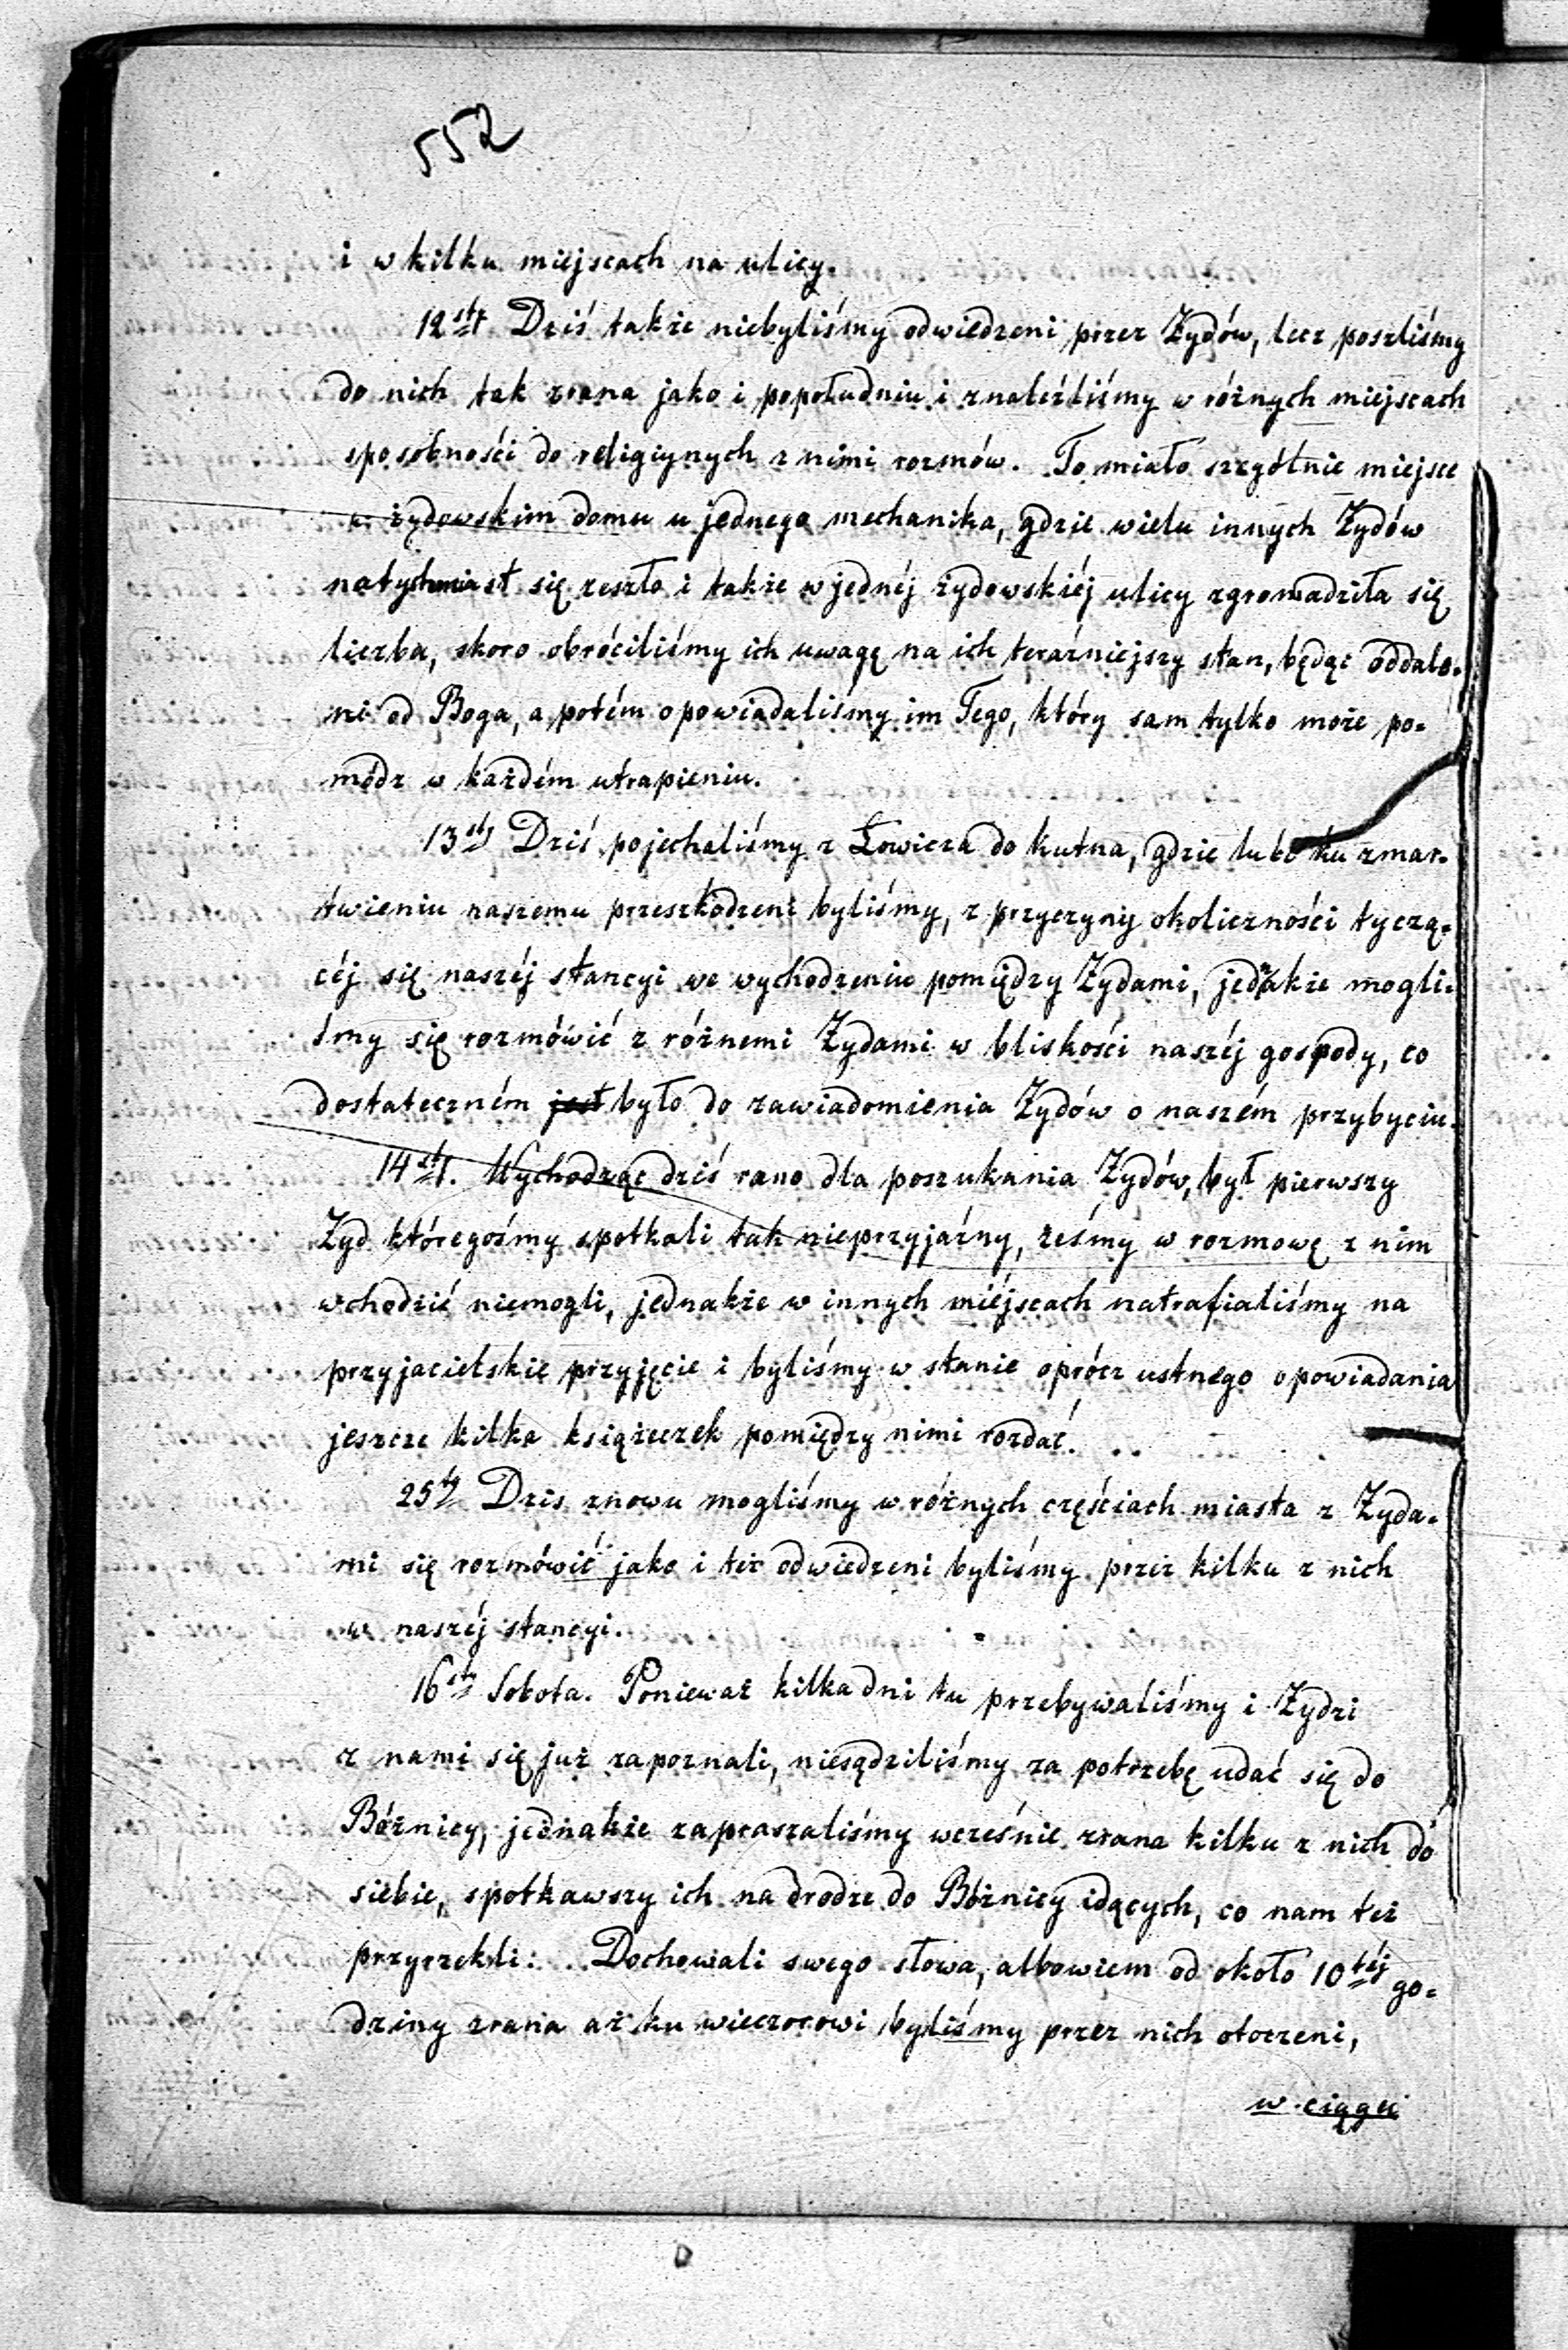 552
i w kilku miejscach na ulicy.
12sty Dziś także niebyliśmy odwiedzeni przez Żydów, lecz poszliśmy
do nich tak zrana jako i popołudniu i znaleźliśmy w różnych miejscach
sposobności do religiynych z nimi rozmów. To miało szzgólnie miejsce
w żydowskim domu u jednego mechanika, gdzie wielu innych Żydów
natychmiast się zeszło i także w jednéj żydowskiéj ulicy zgromadziła się
liczba, skoro obróciliśmy ich uwagę na ich teraźniejszy stan, będąc oddale-
ni od Boga, a potém opowiadaliśmy im Tego, który sam tylko może po-
módz w każdém utrapieniu.
13sty Dziś pojechaliśmy z Łowicza do Kutna, gdzie lubo ku zmar-
twieniu naszemu przeszkodzeni byliśmy, z przyczyny okoliczności tyczą-
céj się naszéj stancyi we wychodzeniu pomiędzy Żydami, jednakże mogli-
śmy się rozmówić z różnemi Żydami w bliskości naszéj gospody, co
dostateczném jest było do zawiadomienia Żydów o naszém przybyciu.
14sty. Wychodząc dziś rano dla poszukania Żydów, był pierwszy
Żyd któregośmy spotkali tak nieprzyjaźny, żeśmy w rozmowę z nim
wchodzić niemogli, jednakże w innych miéjscach natrafialiśmy na
przyjacielskie przyjęcie i byliśmy w stanie oprócz ustnego opowiadania
jeszcze kilka książeczek pomiędzy nimi rozdać.
25ty Dzis znowu mogliśmy w różnych częściach miasta z Żyda-
mi się rozmówić jako i też odwiedzeni byliśmy przez kilku z nich
w naszéj stancyi.
16sty Sobota. Ponieważ kilka dni tu przebywaliśmy i Żydzi
z nami się już zapoznali, niesądziliśmy za potrzebę udać się do
Bóżnicy, jednakże zapraszaliśmy wcześnie zrana kilku z nich do
siebie, spotkawszy ich na drodze do Bóżnicy idących, co nam też
przyrzekli. Dochowali swego słowa, albowiem od około 10téj go-
dziny zrana aż ku wieczorowi byliśmy przez nich otoczeni,
w ciągu